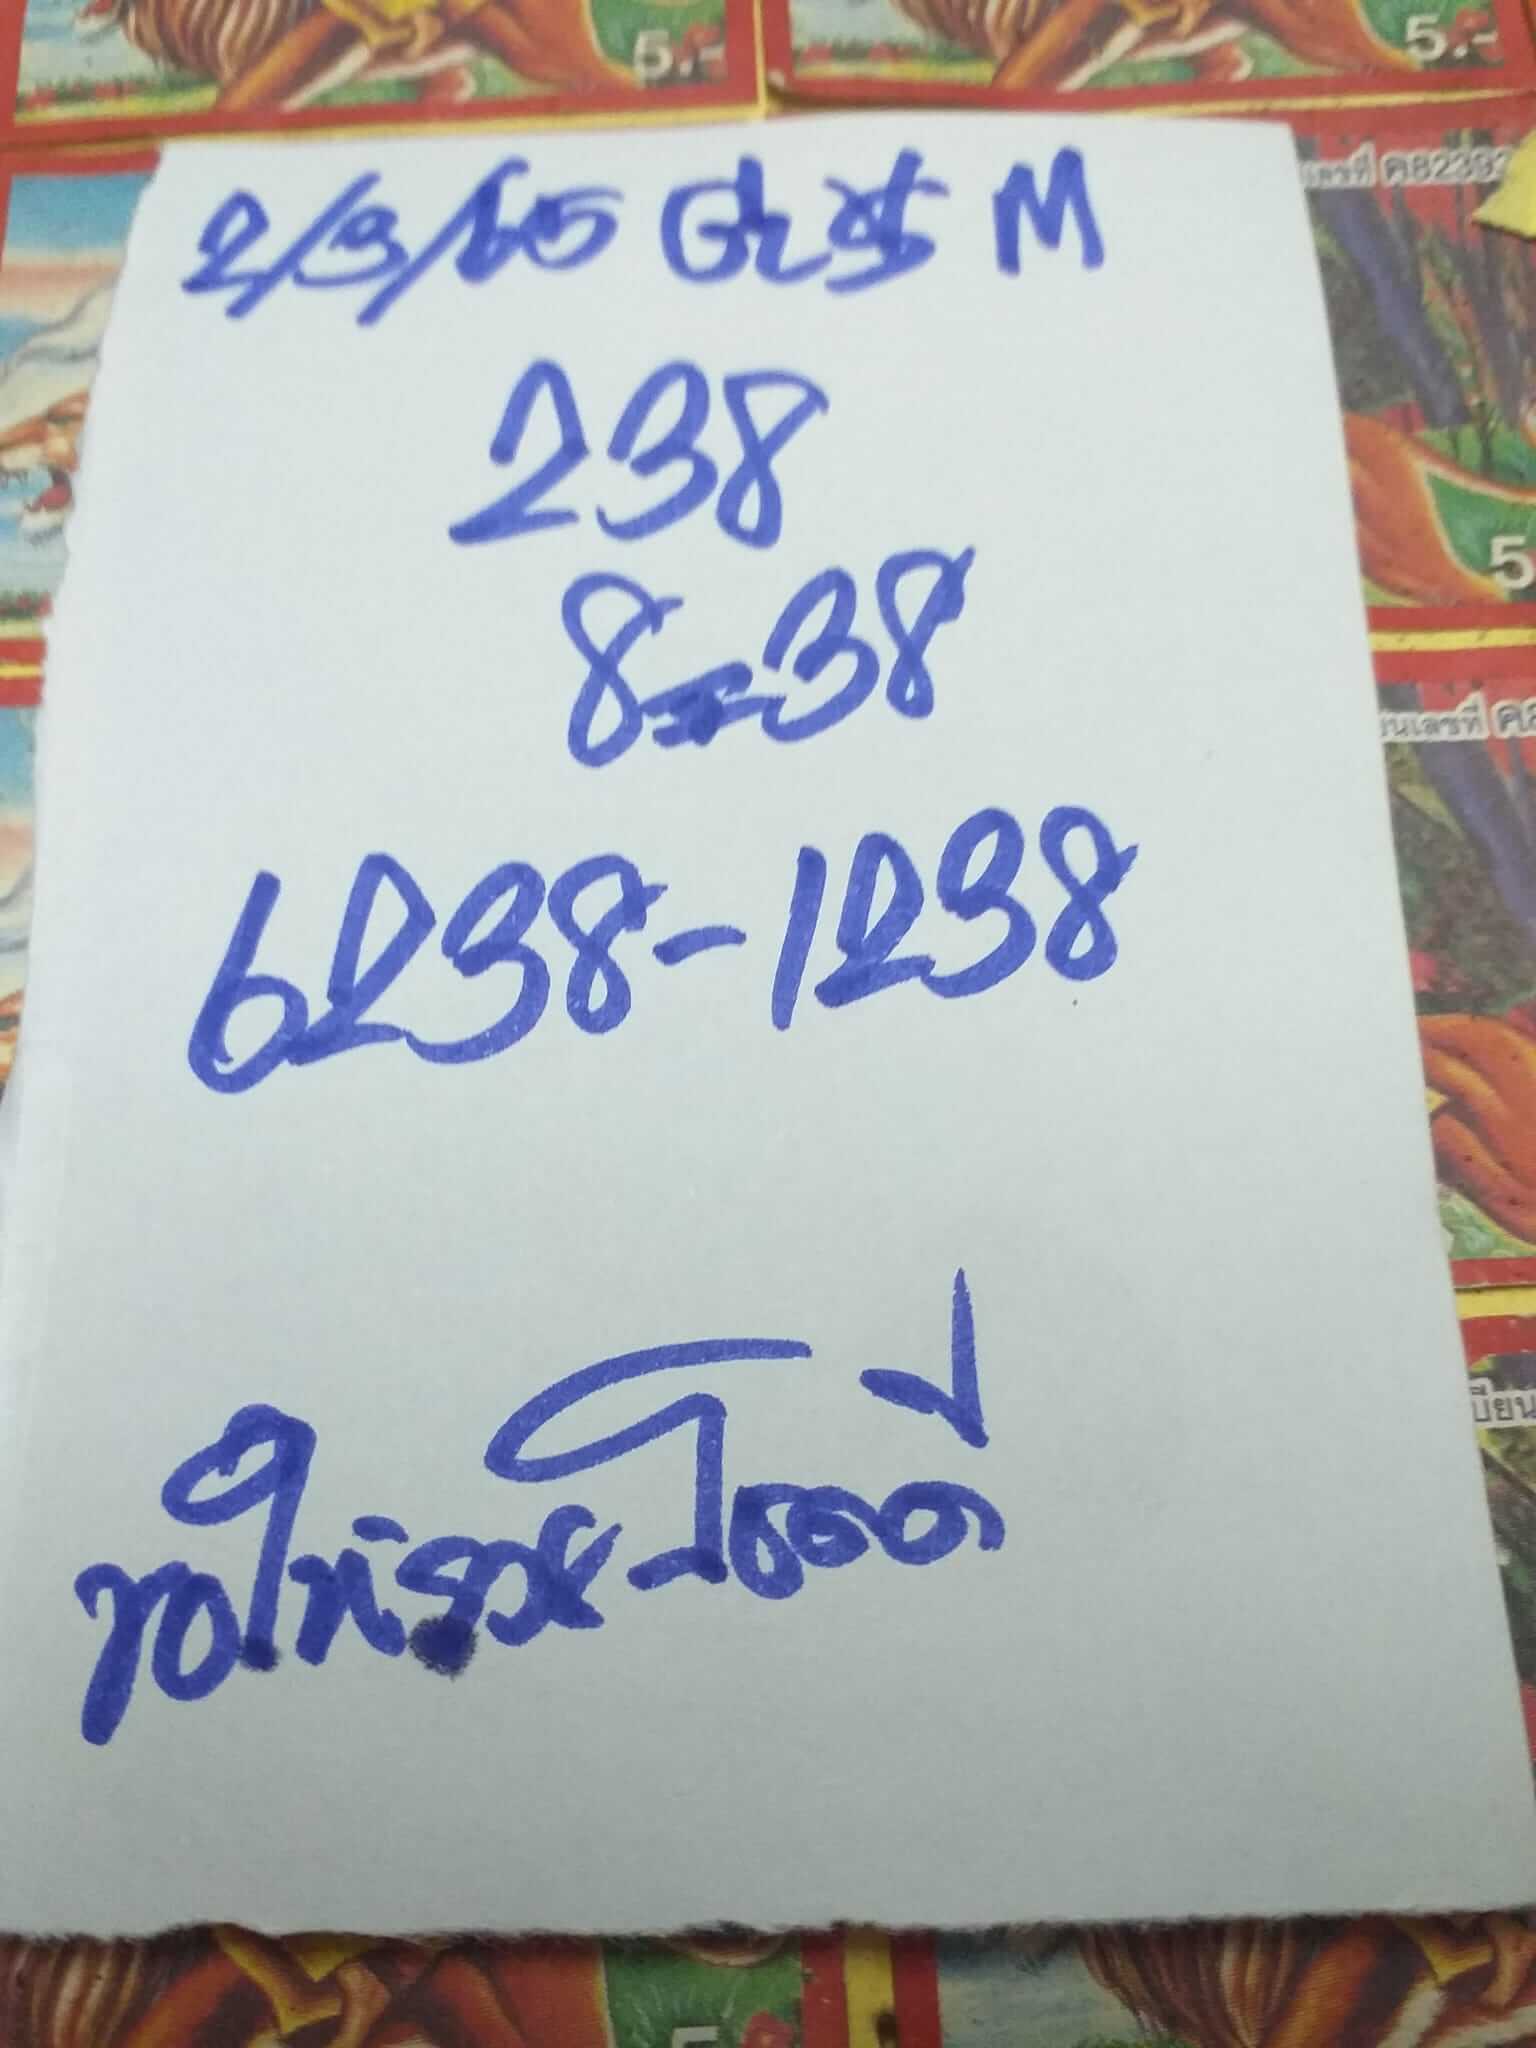 5.-
5.-
เลขที่ ค8239
2/3/65 M
238
8=38
5
นเลขที่ ค
6238-1238
บียน
ขอให้รวยโชคดี
5